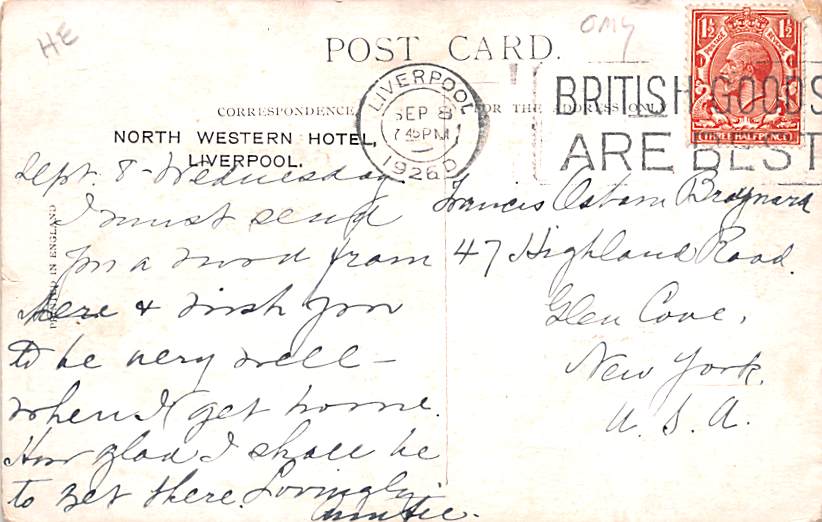 HE
OMY
POST CARD.
CORRESPONDENCE
FOR THE ADDRESS ONLY
LIVERPOOL
SEP 8
7.45PM
1926
BRITISH GOODS
ARE BEST
POSTAGE REVENUE
1½ 1½
THREE HALFPENCE
NORTH WESTERN HOTEL,
LIVERPOOL.
PRINTED IN ENGLAND
Sept. 8 - Wednesday
I must send
you a word from
here & wish you
to be very well –
when I get home.
How glad I shall be
to get there. Lovingly
Auntie.
Francis Osborn Braynard
47 Highland Road.
Glen Cove,
New York.
U. S. A.